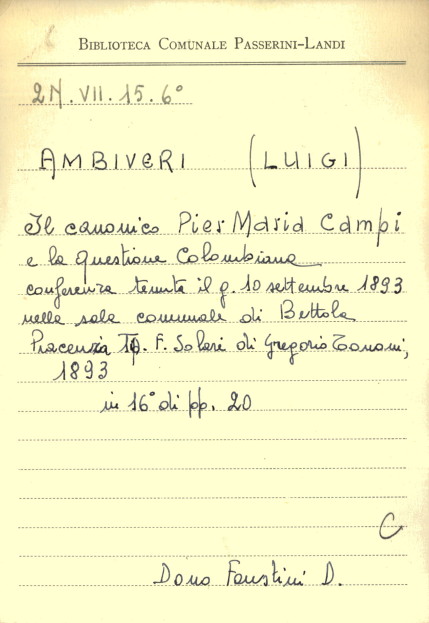 BIBLIOTECA COMUNALE PASSERINI-LANDI
2N.VII.15.6°
AMBIVERI (LUIGI)
Il canonico Pier Maria Campi
e la questione Colombiana
conferenza tenuta il g. 10 settembre 1893
nella sala comunale di Bettola
Piacenza Tip. F. Solari di Gregorio Tononi,
1893
in 16° di pp. 20
C
Dono Faustini D.